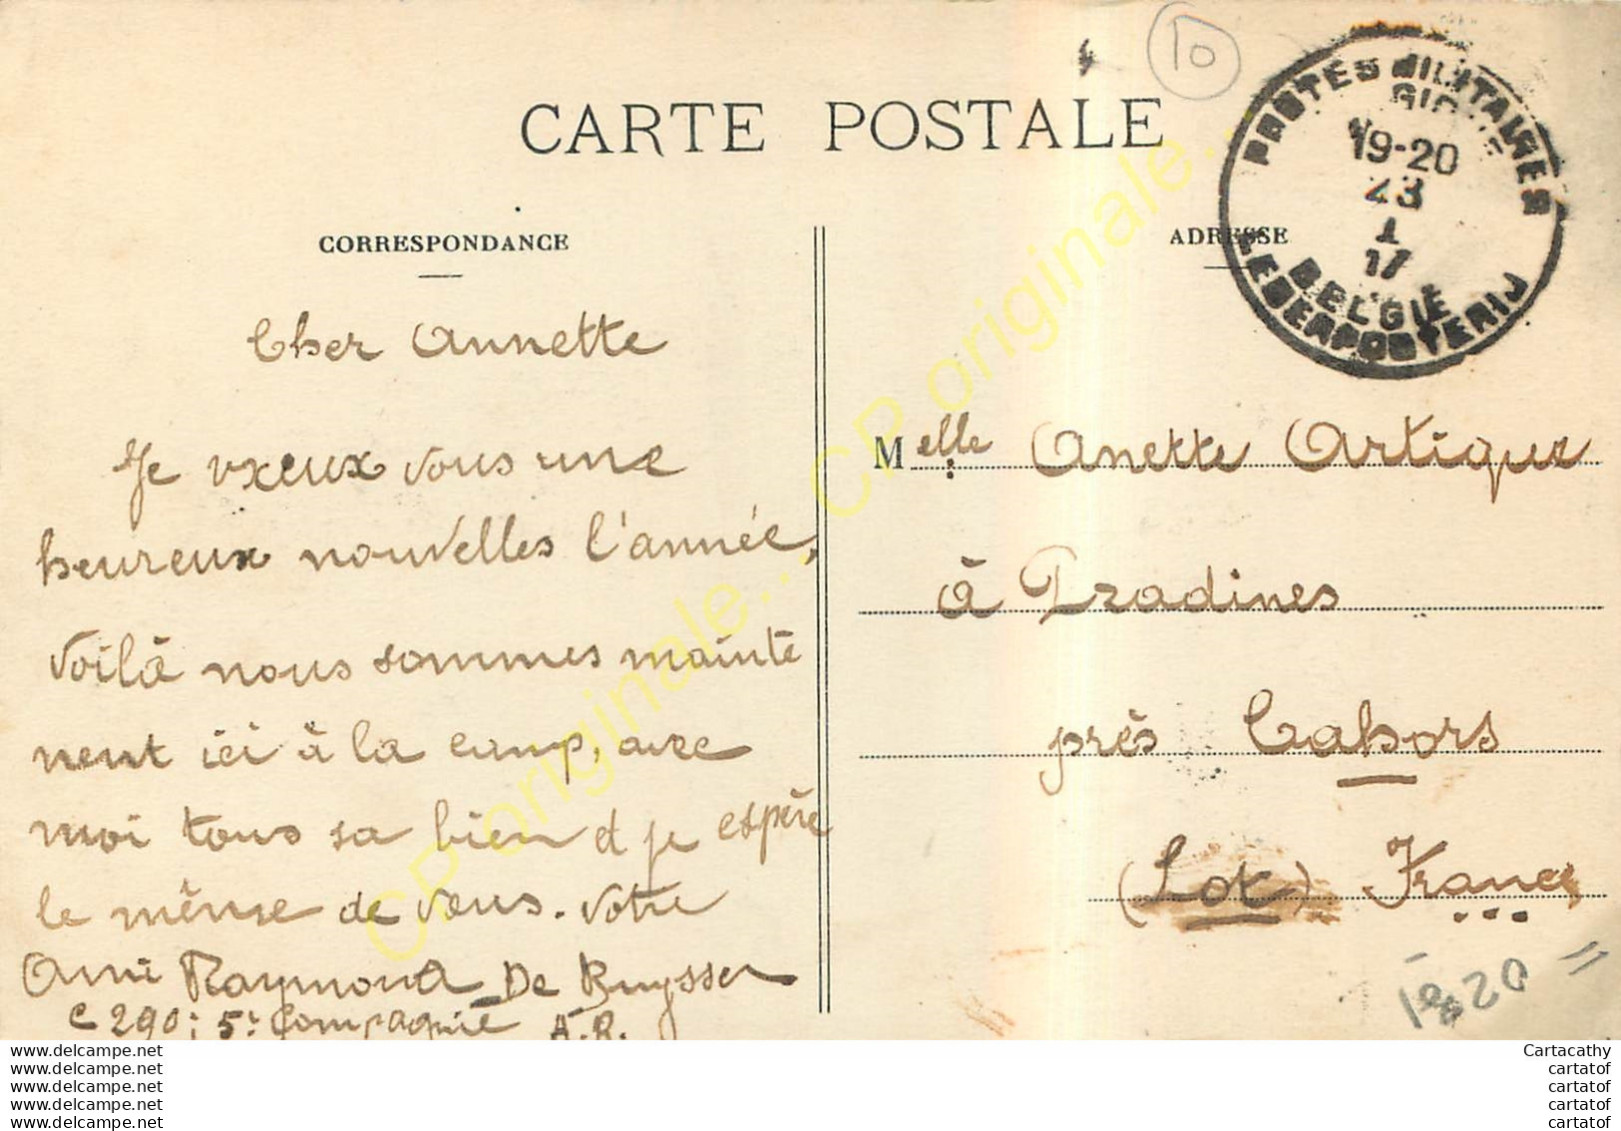 10
CARTE POSTALE
POSTES MILITAIRES
19-20
23
1
17
BELGIË
LEGERPOSTERIJ
CORRESPONDANCE
Cher Annette
Je vxeux vous une
heureux nouvelles l'année,
voilà nous sommes mainte
nent ici à la camp, avec
moi tous sa bien et je espère
le même de vous. Votre
Ami Raymond De Ruysser
C 290; 5e Compagnie A.R.
ADRESSE
Melle Anette Artique
à Pradines
près Cahors
(Lot) France
CP originale... CP originale... CP originale...
www.delcampe.net
www.delcampe.net
www.delcampe.net
www.delcampe.net
www.delcampe.net
Cartacathy
cartatof
cartatof
cartatof
cartatof